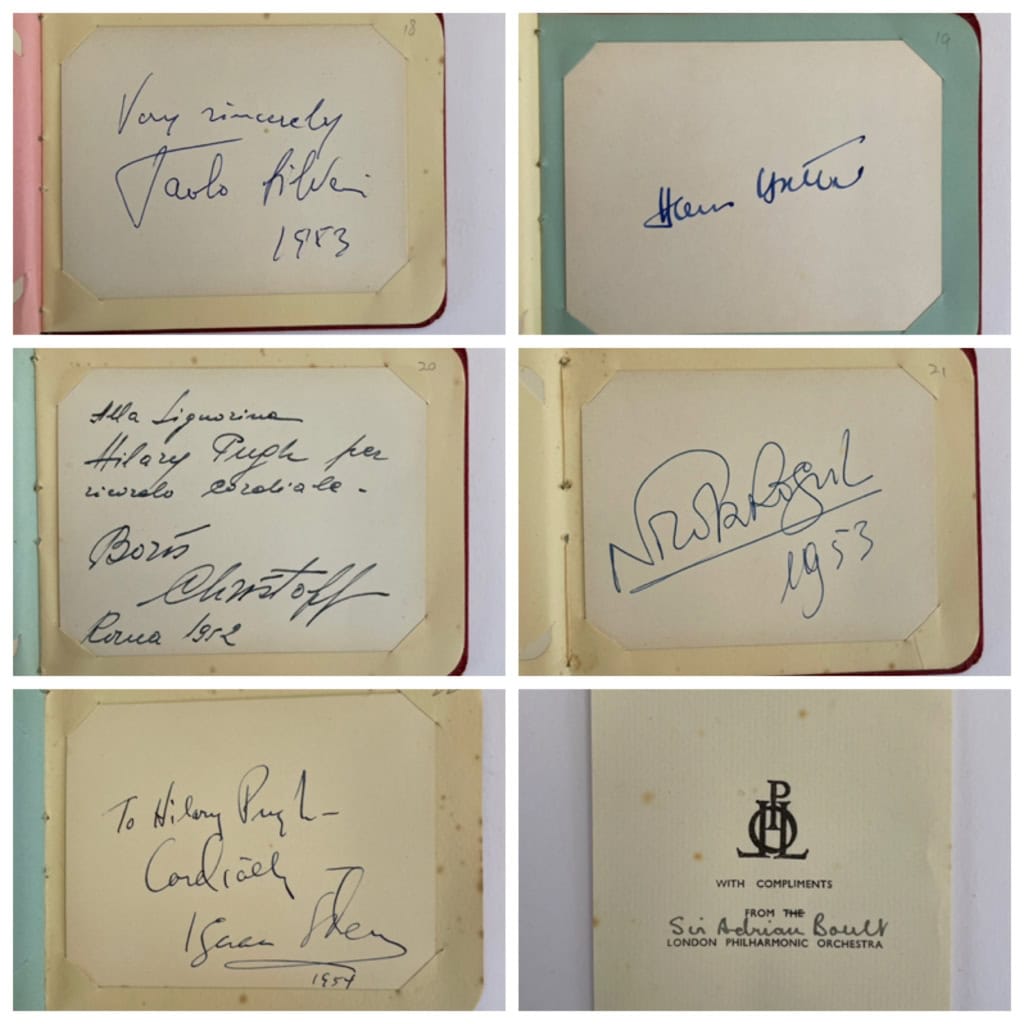 18
Very sincerely
Paolo Silveri
1953
19
Hans Hotter
20
Alla Signorina
Hilary Pugh per
ricordo cordiale -
Boris
Christoff
Roma 1952
21
1953
To Hilary Pugh -
Cordially
Isaac Stern
1954
LPO
WITH COMPLIMENTS
FROM THE
Sir Adrian Boult
LONDON PHILHARMONIC ORCHESTRA